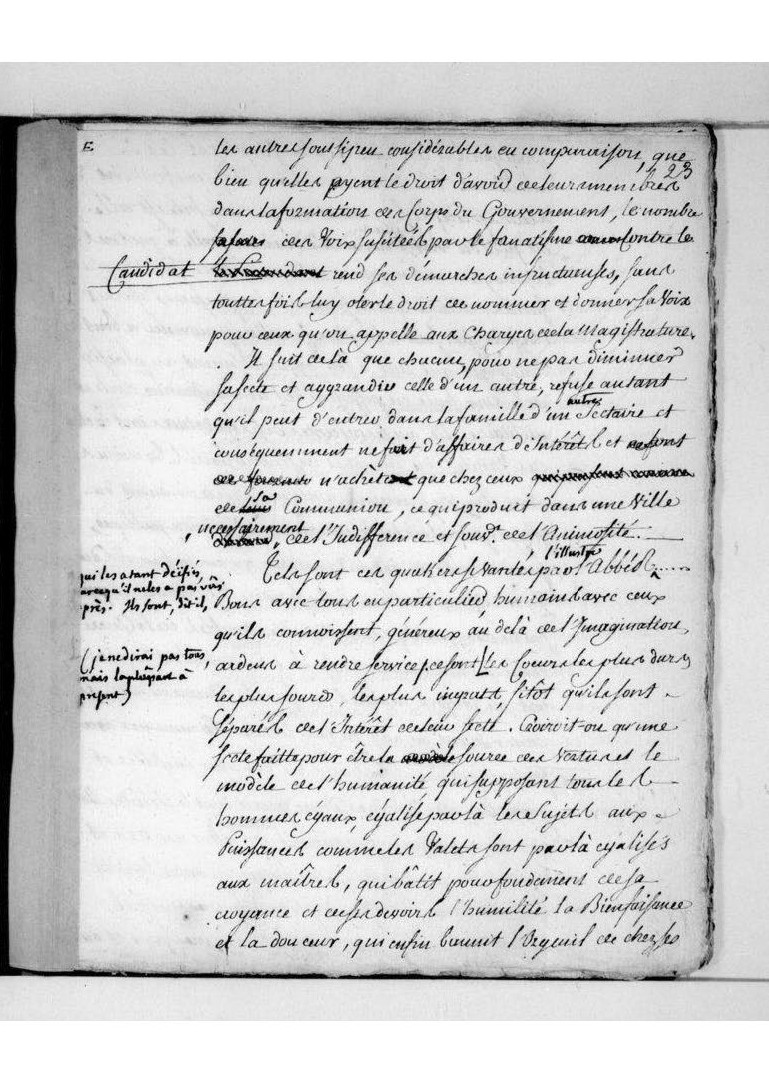 E
23
les autres sont si peu considérables en comparaison, que
bien qu'elles ayent le droit d'avoir de leurs membres
dans la formation des corps du Gouvernement, le nombre
des Voix suscitées par le fanatisme contre le
Candidat rend ses démarches infructueuses, sans
touttes fois luy oter le droit de nommer et donner sa Voix
pour ceux qu'on appelle aux Charges de la Magistrature.
Il suit de là que chacun, pour ne pas diminuer
sa secte et aggrandir celle d'un autre, refuse autant
qu'il peut d'entrer dans la famille d'un autre Sectaire et
conséquemment ne fait d'affaires d'Intérêts et
n'achète que chez ceux
de sa Communion, ce qui produit dans une Ville
necessairement, de l'Indifference et souvt. de l'Animosité.
Tels sont ces quakers si vantés par l'illustre Abbé R.....
qui les a tant déifiés,
parcequ'il ne les a pas vûs
près. Ils sont, dit-il,
Bons avec tous en particulier humains avec ceux
qu'ils connoissent, généreux au delà de l'Imagination,
ardens à rendre service, ce sont
(je ne dirai pas tous,
mais la plûpart à
présent)
les Coeurs les plus durs,
les plus sourds, les plus ingrats, sitôt qu'ils sont
séparés de l'Intérêt de leur secte. Croiroit-on qu'une
secte faitte pour être la source des Vertus et le
modèle de l'humanité, qui supposant tous les
hommes égaux, égalise par là les Sujets aux
Puissances comme les Valets sont par là égalisés
aux maîtres, qui bâtit pour fondement de sa
croyance et de ses devoirs l'humilité la Bienfaisance
et la douceur, qui enfin bannit l'Orgeuil de chez se